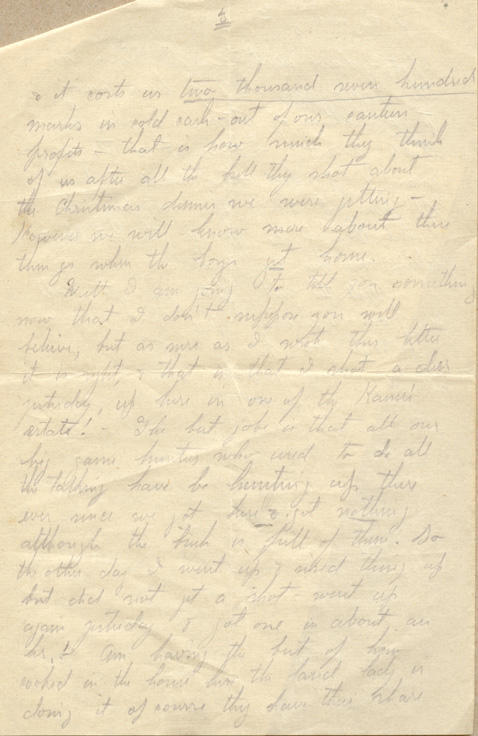 5
& it costs us two thousand seven hundred
marks in cold cash - out of our canteen
profits - that is how much they think
of us after all the bull they shot about
the Christmas dinner we were getting -
However we will know more about these
things when the boys get home.
Well I am going to tell you something
now that I don't suppose you will
believe, but as sure as I wrote this letter
it is right, & that is that I shot a deer
yesterday, up here in one of the Kaiser's
estate! - The best joke is that all our
big game hunters who used to do all
the talking have be hunting up there
ever since we got here & got nothing
although the bush is full of them. So
the other day I went up & nosed things up
but did not get a shot - went up
again yesterday & got one in about an
hr. Am having the best of him
cooked in the house here the land lady is
doing it of course they have their share